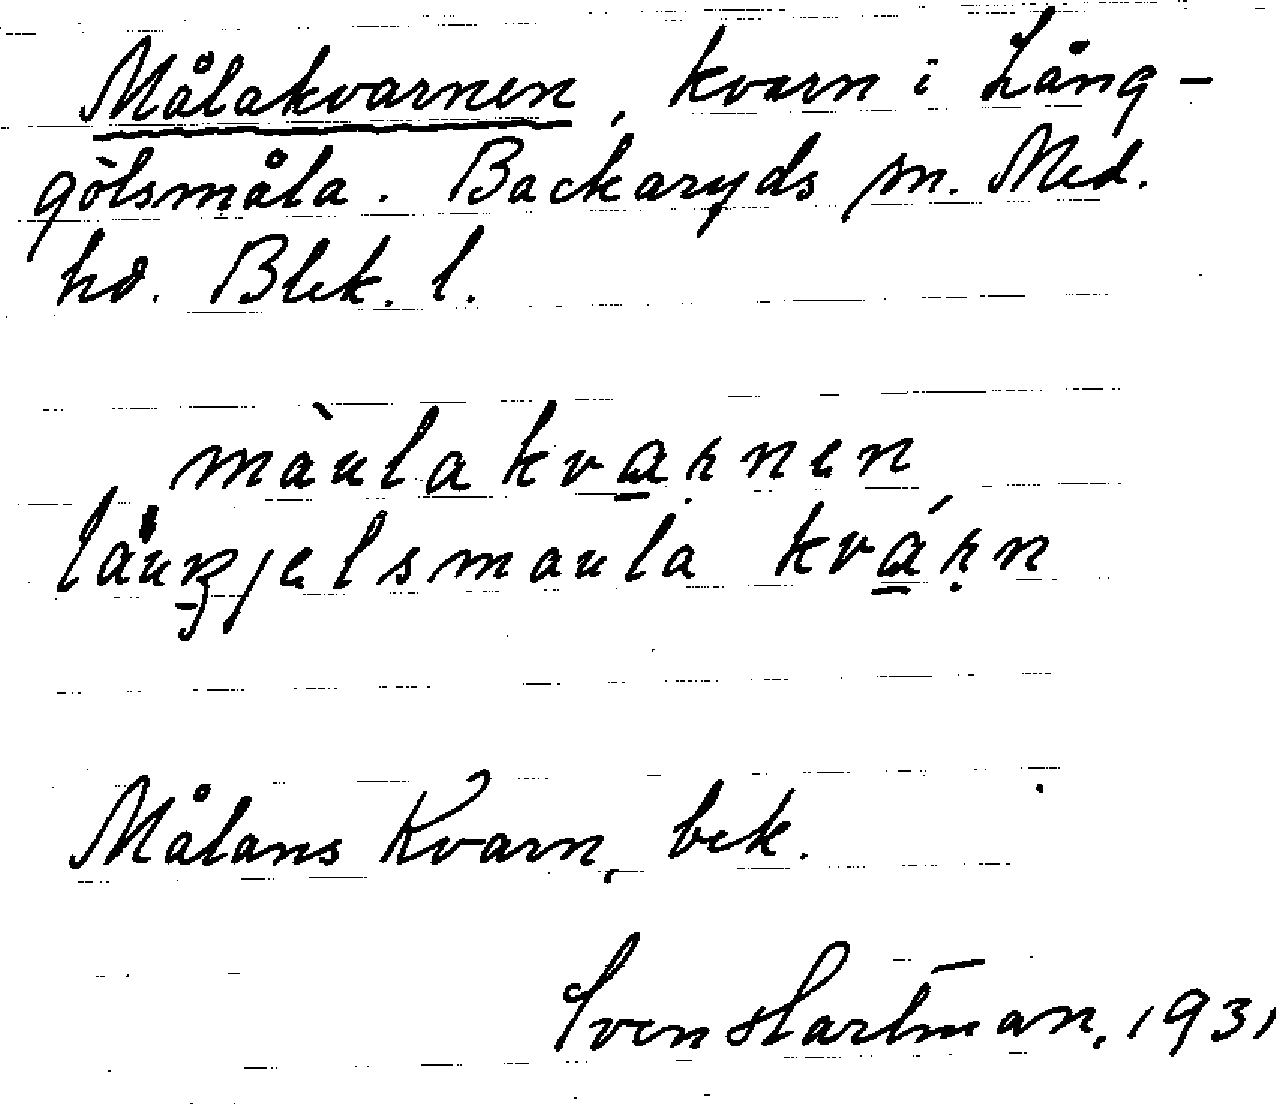 Målakvarnen, kvarn i Lång-
gölsmåla. Backaryds sn. Med.
hd. Blek. l.
màulakva̲ṛnen
làuŋjelsmaula kvá̲ṛn
Målans Kvarn, bek.
Sven Hartman, 1931